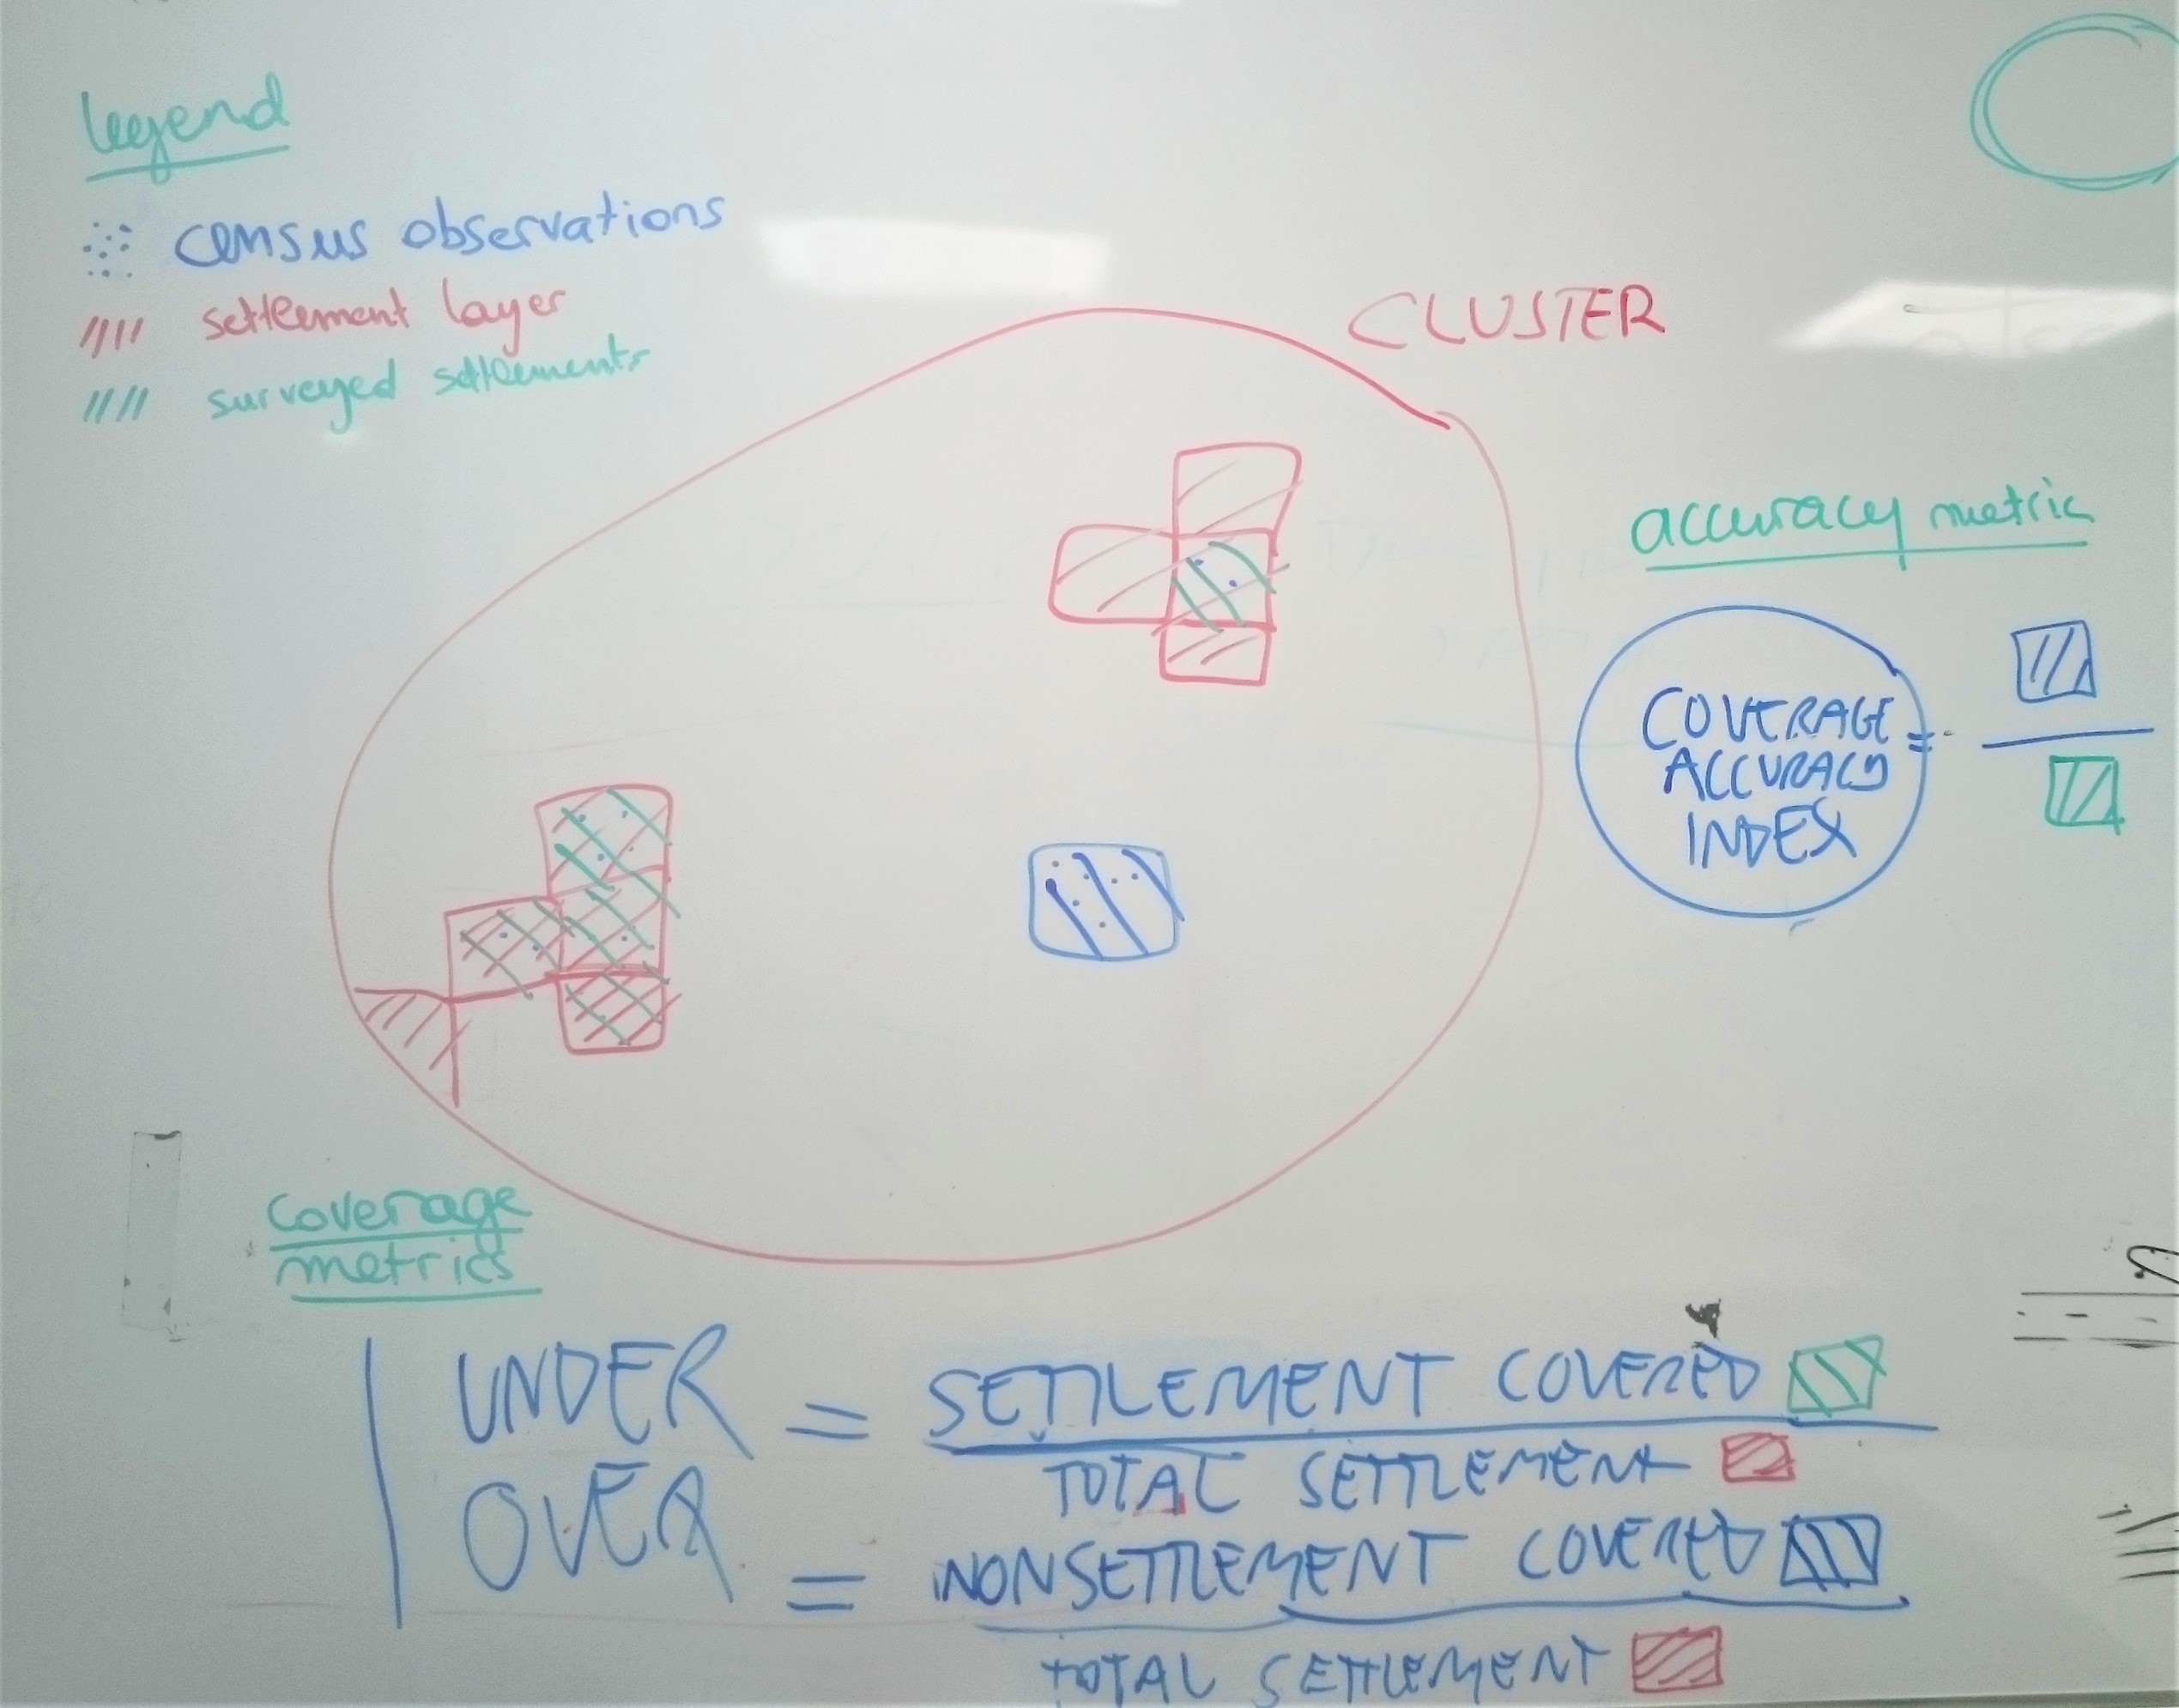 legend
census observations
settlement layer
surveyed settlements
CLUSTER
accuracy metric
COVERAGE
ACCURACY
INDEX
=
coverage
metrics
UNDER = SETTLEMENT COVERED
TOTAL SETTLEMENT
OVER = NONSETTLEMENT COVERED
TOTAL SETTLEMENT